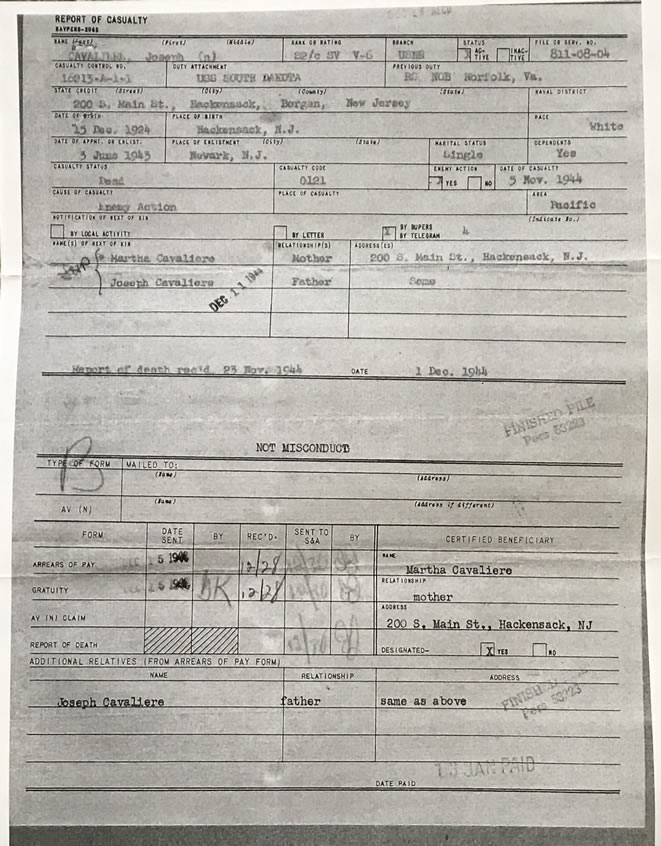 REPORT OF CASUALTY
NAME (Last) (First) (Middle) RANK OR RATING BRANCH STATUS FILE OR SERV. NO.
CAVALIERE, Joseph (n) S2/c SV V-6 USNR AC-TIVE INAC-TIVE 811-08-04
CASUALTY CONTROL NO. DUTY ATTACHMENT PREVIOUS DUTY
16213-A-1-1 USS SOUTH DAKOTA RS NOB Norfolk, Va.
STATE CREDIT (Street) (City) (County) (State) NAVAL DISTRICT
200 S. Main St., Hackensack, Bergen, New Jersey
DATE OF BIRTH PLACE OF BIRTH RACE
15 Dec. 1924 Hackensack, N.J. White
DATE OF APPMT. OR ENLIST. PLACE OF ENLISTMENT (City) (State) MARITAL STATUS DEPENDENTS
3 June 1943 Newark, N.J. Single Yes
CASUALTY STATUS CASUALTY CODE ENEMY ACTION DATE OF CASUALTY
Dead 0121 YES NO 5 Nov. 1944
CAUSE OF CASUALTY PLACE OF CASUALTY AREA
Enemy Action Pacific
NOTIFICATION OF NEXT OF KIN (Indicate No.)
BY LOCAL ACTIVITY BY LETTER X BY BUPERS BY TELEGRAM
NAME(S) OF NEXT OF KIN RELATIONSHIP(S) ADDRESS(ES)
Martha Cavaliere Mother 200 S. Main St., Hackensack, N.J.
Joseph Cavaliere Father Same
DEC 11 1944
Report of death rec'd 23 Nov. 1944 DATE 1 Dec. 1944
FINISHED FILE
Pers 53223
NOT MISCONDUCT
B
TYPE OF FORM MAILED TO:
(Name) (Address)
AV (N) (Name) (Address if different)
FORM DATE SENT BY REC'D. SENT TO S&A BY CERTIFIED BENEFICIARY
NAME
ARREARS OF PAY 12/28 Martha Cavaliere
RELATIONSHIP
GRATUITY 12/28 mother
ADDRESS
AV (N) CLAIM 200 S. Main St., Hackensack, NJ
REPORT OF DEATH DESIGNATED- X YES NO
ADDITIONAL RELATIVES (FROM ARREARS OF PAY FORM)
NAME RELATIONSHIP ADDRESS
Joseph Cavaliere father same as above
FINISHED FILE
Pers 53223
JAN PAID
DATE PAID